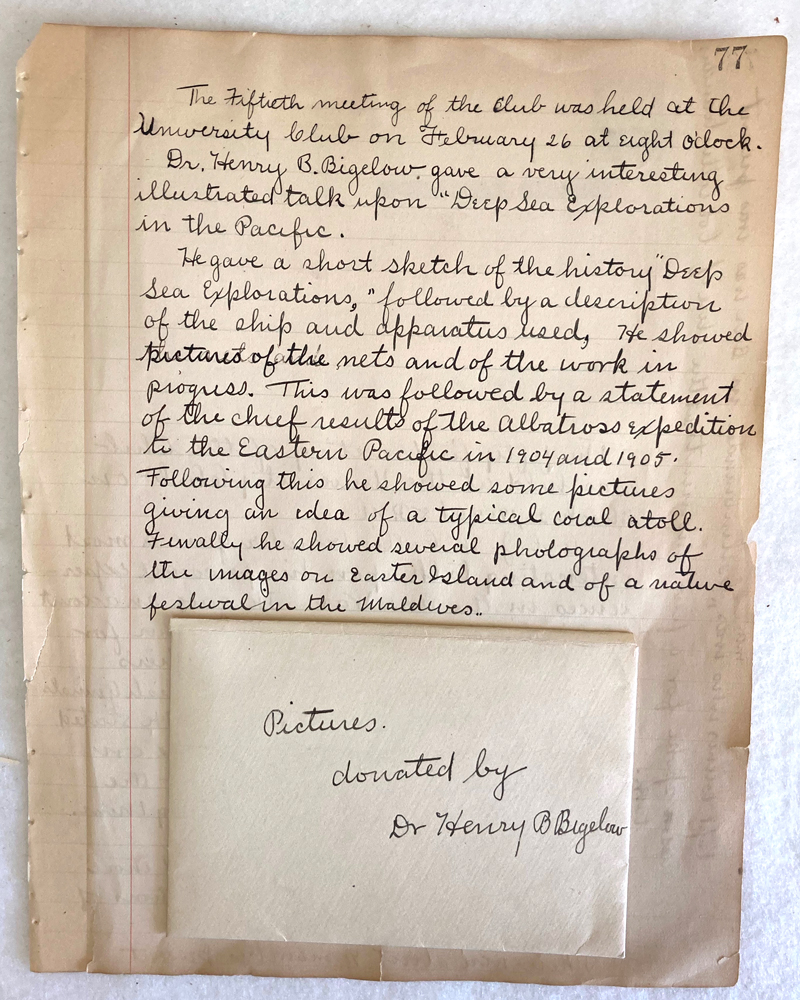 77
The Fiftieth meeting of the Club was held at the
University Club on February 26 at eight o'clock.
Dr. Henry B. Bigelow gave a very interesting
illustrated talk upon "Deep Sea Explorations
in the Pacific.
He gave a short sketch of the history "Deep
Sea Explorations," followed by a description
of the ship and apparatus used, He showed
pictures of the nets and of the work in
progress. This was followed by a statement
of the chief results of the Albatross expedition
to the Eastern Pacific in 1904 and 1905.
Following this he showed some pictures
giving an idea of a typical coral atoll.
Finally he showed several photographs of
the images on Easter Island and of a native
festival in the Maldives..
Pictures.
donated by
Dr Henry B Bigelow